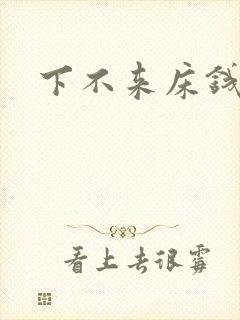 下不来床钱
看上去很霉